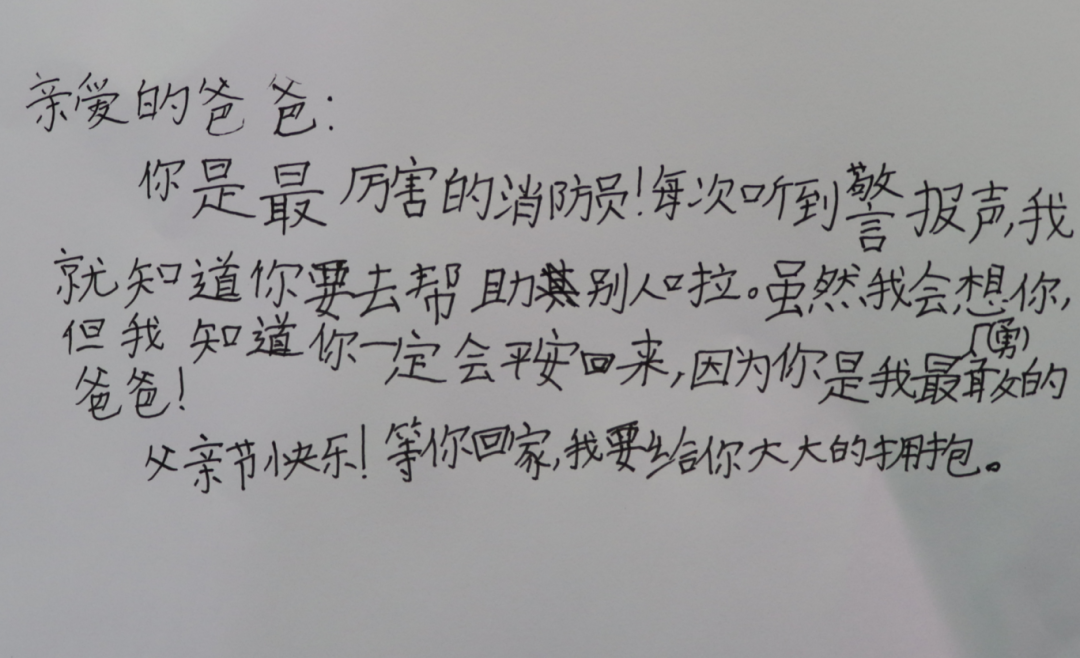 亲爱的爸爸:
你是最厉害的消防员!每次听到警报声,我
就知道你要去帮助别人啦。虽然我会想你,
但我知道你一定会平安回来,因为你是我最勇敢的
爸爸!
父亲节快乐!等你回家,我要给你大大的拥抱。